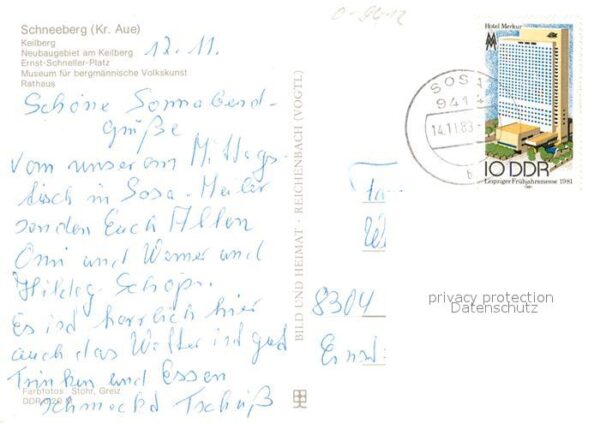 Schneeberg (Kr. Aue)
Keilberg
Neubaugebiet am Keilberg
Ernst-Schneller-Platz
Museum für bergmännische Volkskunst
Rathaus
12.11.
Schöne Sonnabend-
grüße
Vom unserem Mittags
tisch in Sosa
senden Euch Allen
Omi und Werner und
Hildeg.
Es ist herrlich hier
auch das Wetter ist gut
Trinken und Essen
schmeckt Tschüß
Farbfotos: Stöhr, Greiz
BILD UND HEIMAT · REICHENBACH (VOGTL)
Hotel Merkur
10 DDR
Leipziger Frühjahrsmesse 1981
SOSA
941
14.11.83
b
Fam
8304
privacy protection
Datenschutz
Ernst